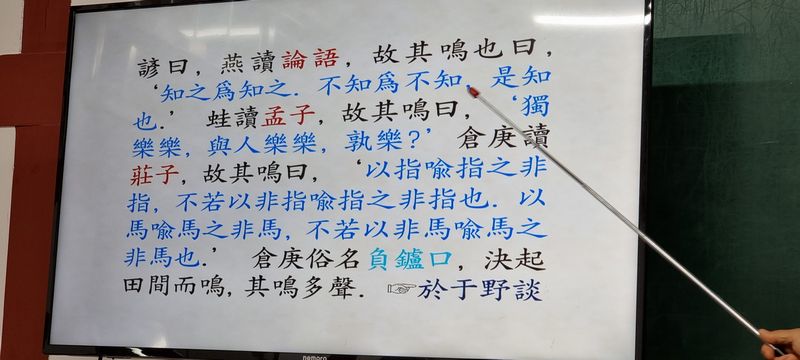 諺曰, 燕讀論語, 故其鳴也曰,
‘知之爲知之. 不知爲不知, 是知
也.’ 蛙讀孟子, 故其鳴曰, ‘獨
樂樂, 與人樂樂, 孰樂?’ 倉庚讀
莊子, 故其鳴曰, ‘以指喩指之非
指, 不若以非指喩指之非指也. 以
馬喩馬之非馬, 不若以非馬喩馬之
非馬也.’ 倉庚俗名負鑪口, 決起
田間而鳴, 其鳴多聲. ☞於于野談
nemoro